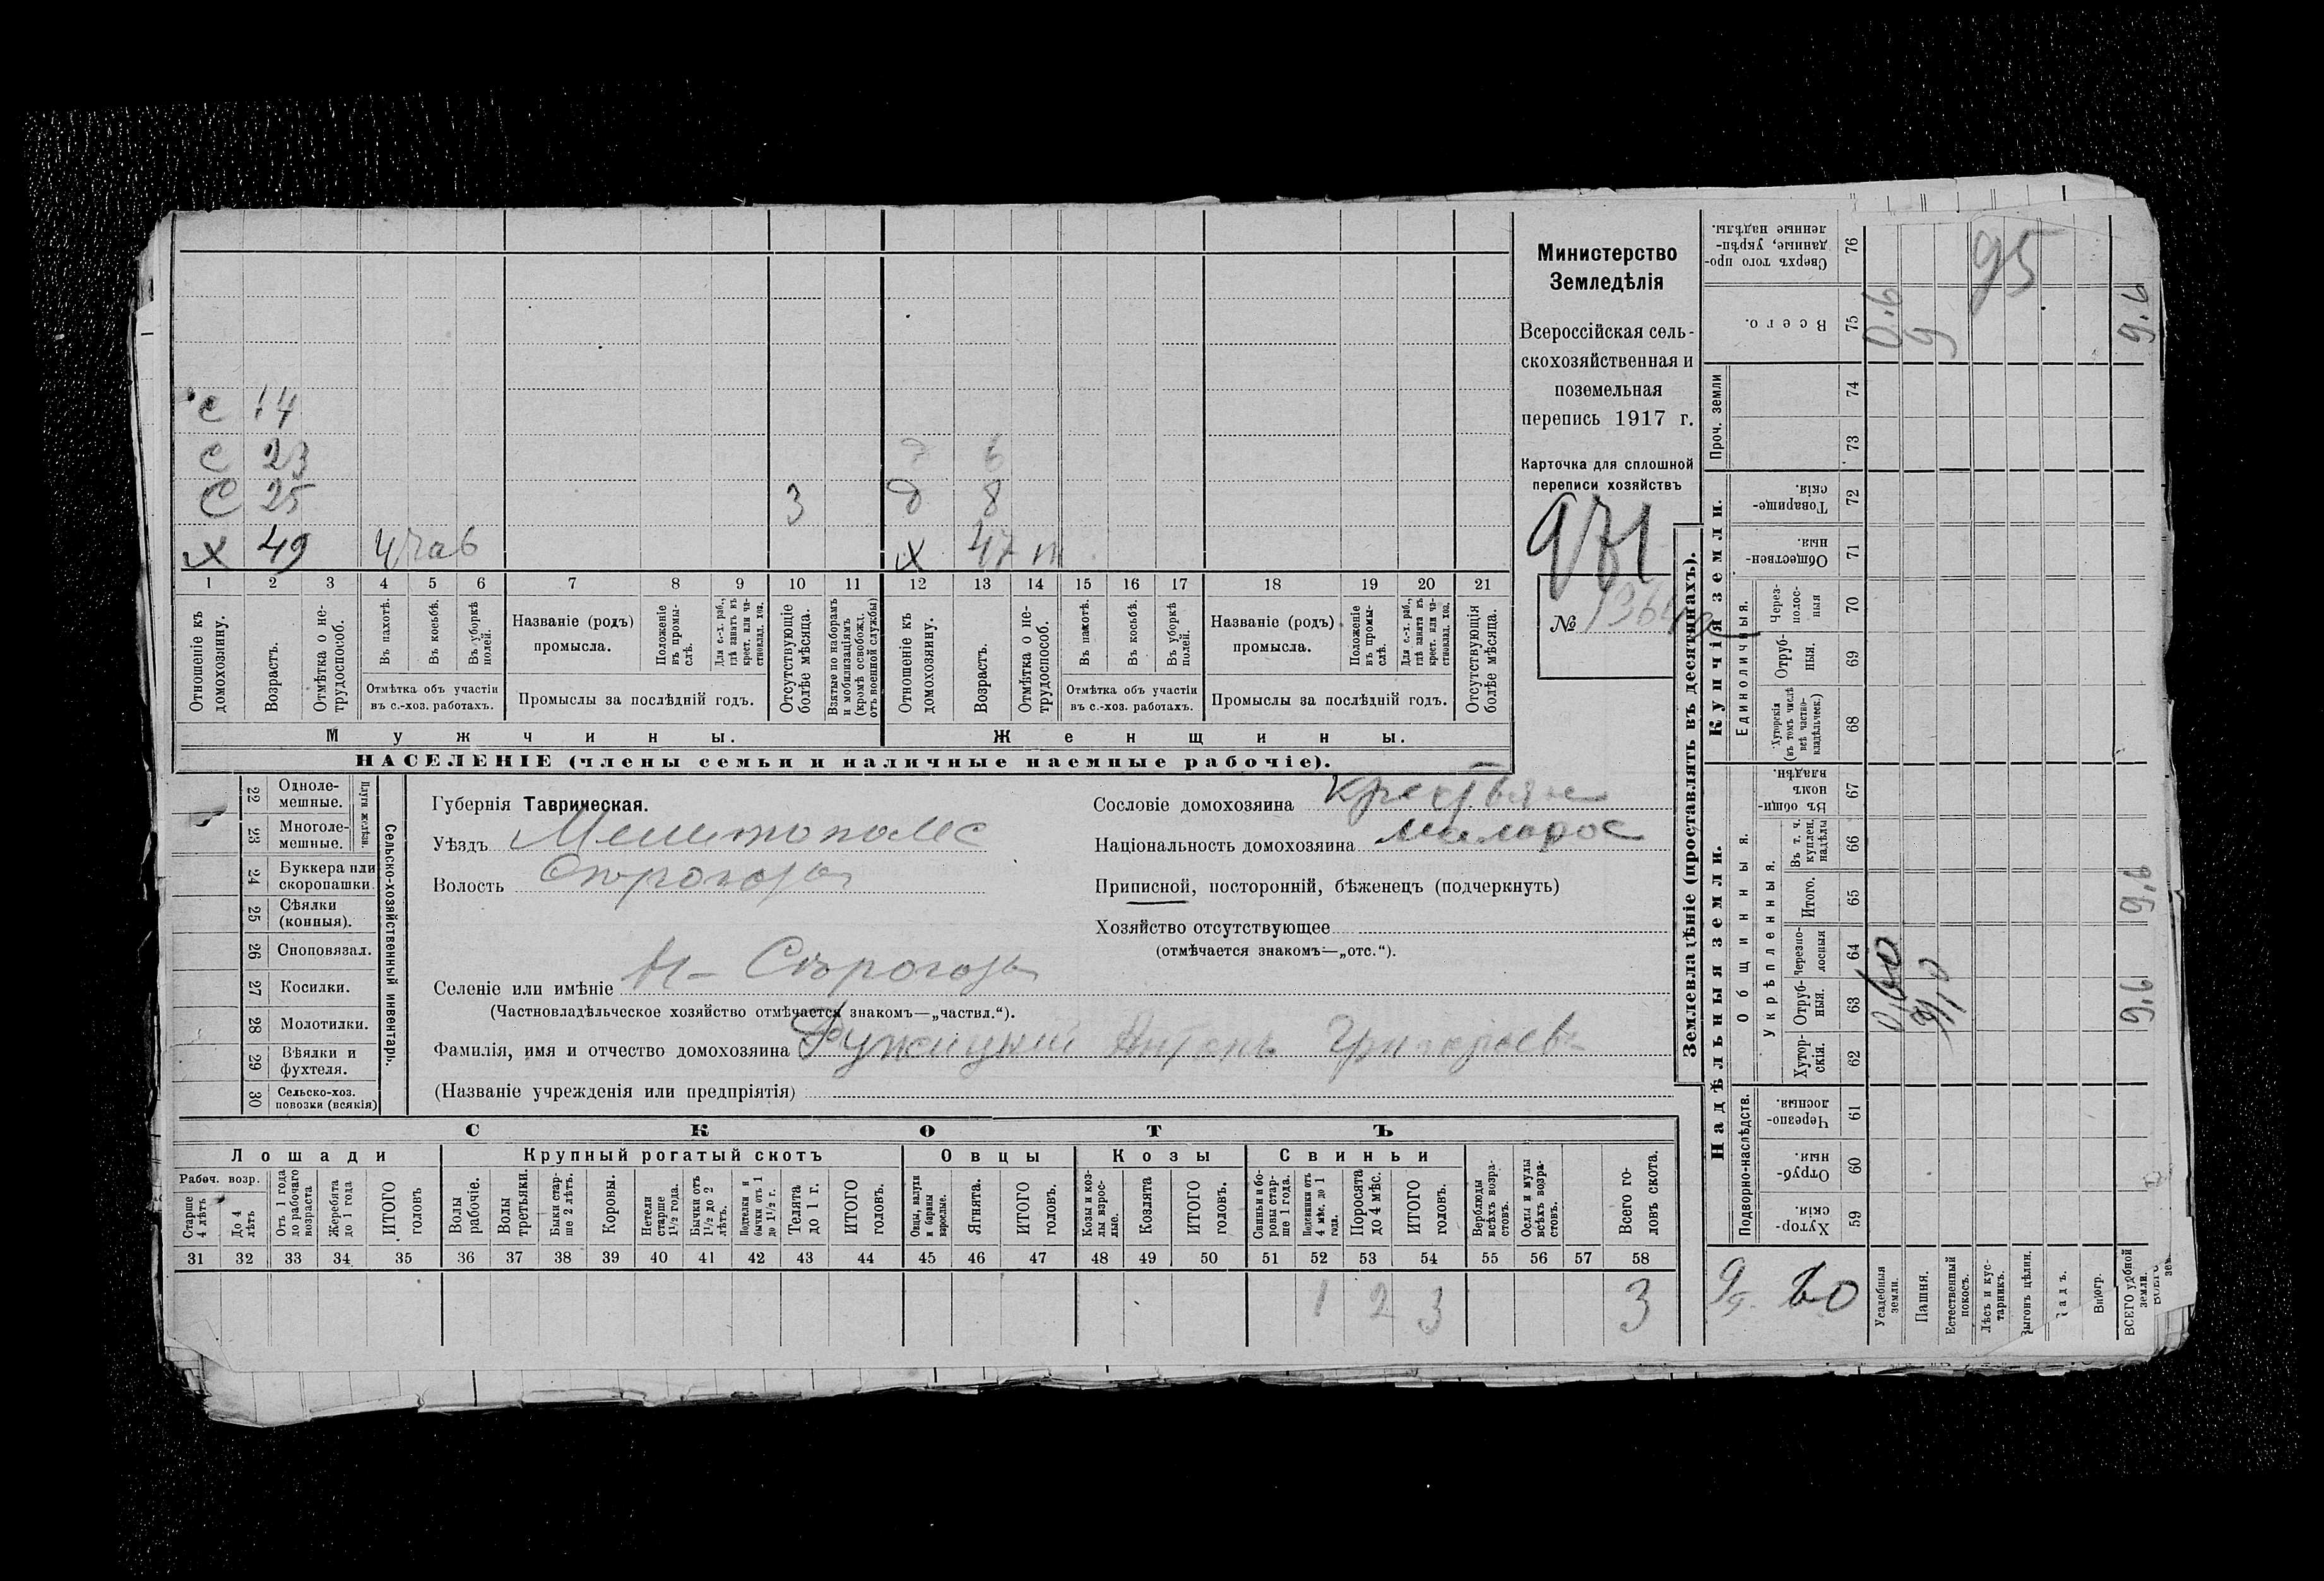 Министерство
Земледѣлія
Всероссійская сель-
скохозяйственная и
поземельная
перепись 1917 г.
Карточка для сплошной
переписи хозяйствъ
971
№
с 14
с 23 6
С 25 3 д 8
х 49 х 47
1 2 3 4 5 6 7 8 9 10 11 12 13 14 15 16 17 18 19 20 21
Отношеніе къ домохозяину.
Возрастъ.
Отмѣтка о не-трудоспособ.
Въ пахотѣ.
Въ косьбѣ.
Въ уборкѣ полей.
Отмѣтка объ участіи
въ с.-хоз. работахъ.
Названіе (родъ)
промысла.
Положеніе въ промы-слѣ.
Для с.-х. раб., гдѣ занятъ въ крест. или ча-стновлад. хоз.
Промыслы за послѣдній годъ.
Отсутствующіе болѣе мѣсяца.
Взятые по наборамъ и мобилизаціямъ (кромѣ освобожд. отъ военной службы)
Отношеніе къ домохозяину.
Возрастъ.
Отмѣтка о не-трудоспособ.
Въ пахотѣ.
Въ косьбѣ.
Въ уборкѣ полей.
Отмѣтка объ участіи
въ с.-хоз. работахъ.
Названіе (родъ)
промысла.
Положеніе въ промы-слѣ.
Для с.-х. раб., гдѣ занята въ крест. или ча-стновлад. хоз.
Промыслы за послѣдній годъ.
Отсутствующія болѣе мѣсяца.
Мужчины. Женщины.
НАСЕЛЕНІЕ (члены семьи и наличные наемные рабочіе).
22 Одноле-мешные.
23 Многоле-мешные.
Плуги желѣзн.
24 Буккера или скоропашки.
25 Сѣялки (конныя).
26 Сноповязал.
27 Косилки.
28 Молотилки.
29 Вѣялки и фухтеля.
30 Сельско-хоз. повозки (всякія)
Сельско-хозяйственный инвентарь.
Губернія Таврическая.
Уѣздъ Мелитополс
Волость Сѣрогозы
Селеніе или имѣніе Н-Сѣрогозы
(Частновладѣльческое хозяйство отмѣчается знакомъ—„частвл.“).
Фамилія, имя и отчество домохозяина Ружицкий Антонъ Григорьевъ
(Названіе учрежденія или предпріятія)
Сословіе домохозяина Крестьяне
Національность домохозяина малорос
Приписной, посторонній, бѣженецъ (подчеркнуть)
Хозяйство отсутствующее
(отмѣчается знакомъ—„отс.“).
СКОТЪ
Лошади Крупный рогатый скотъ Овцы Козы Свиньи
Рабоч. возр.
Старше 4 лѣтъ
До 4 лѣтъ
Отъ 1 года до рабочаго возраста
Жеребята до 1 года
ИТОГО головъ
Волы рабочіе.
Волы третьяки.
Быки стар-ше 2 лѣтъ.
Коровы.
Нетели старше 1½ года.
Бычки отъ 1½ до 2 лѣтъ.
Подтелки и бычки отъ 1 до 1½ г.
Телята до 1 г.
ИТОГО головъ.
Овцы, валухи и бараны взрослые.
Ягнята.
ИТОГО головъ.
Козы и коз-лы взрос-лые.
Козлята
ИТОГО головъ.
Свиньи и бо-ровы стар-ше 1 года.
Подсвинки отъ 4 мѣс. до 1 года.
Поросята до 4 мѣс.
ИТОГО головъ.
Верблюды всѣхъ возра-стовъ.
Ослы и мулы всѣхъ возра-стовъ.
Всего го-ловъ скота.
31 32 33 34 35 36 37 38 39 40 41 42 43 44 45 46 47 48 49 50 51 52 53 54 55 56 57 58
1 2 3 3
Землевладѣніе (проставлять въ десятинахъ).
Купчія земли.
Надѣльныя земли.
Сверхъ того про-данные, укрѣп-ленные надѣлы. 76
Всего. 75
Проч. земли
74
73
Товарище-скія. 72
Обществен-ныя. 71
Единоличныя.
Через-полос-ныя 70
Отруб-ныя. 69
Хуторскія (въ томъ числѣ всѣ частно-владѣльческ.) 68
Общинныя.
Въ общи-номъ владѣн. 67
Укрѣпленныя.
Въ т. ч. куплен. надѣлы 66
Итого. 65
Черезпо-лосныя 64
Отруб-ныя. 63
Хутор-скія. 62
Подворно-наслѣдств.
Черезпо-лосныя. 61
Отруб-ныя. 60
Хутор-скія. 59
Усадебныя земли.
Пашня.
Естественный покосъ.
Лѣсъ и кус-тарникъ.
Выгонъ цѣлин.
Виногр.
ВСЕГО удобной земли.
95
0.6
9
9.6
9.6
9.6